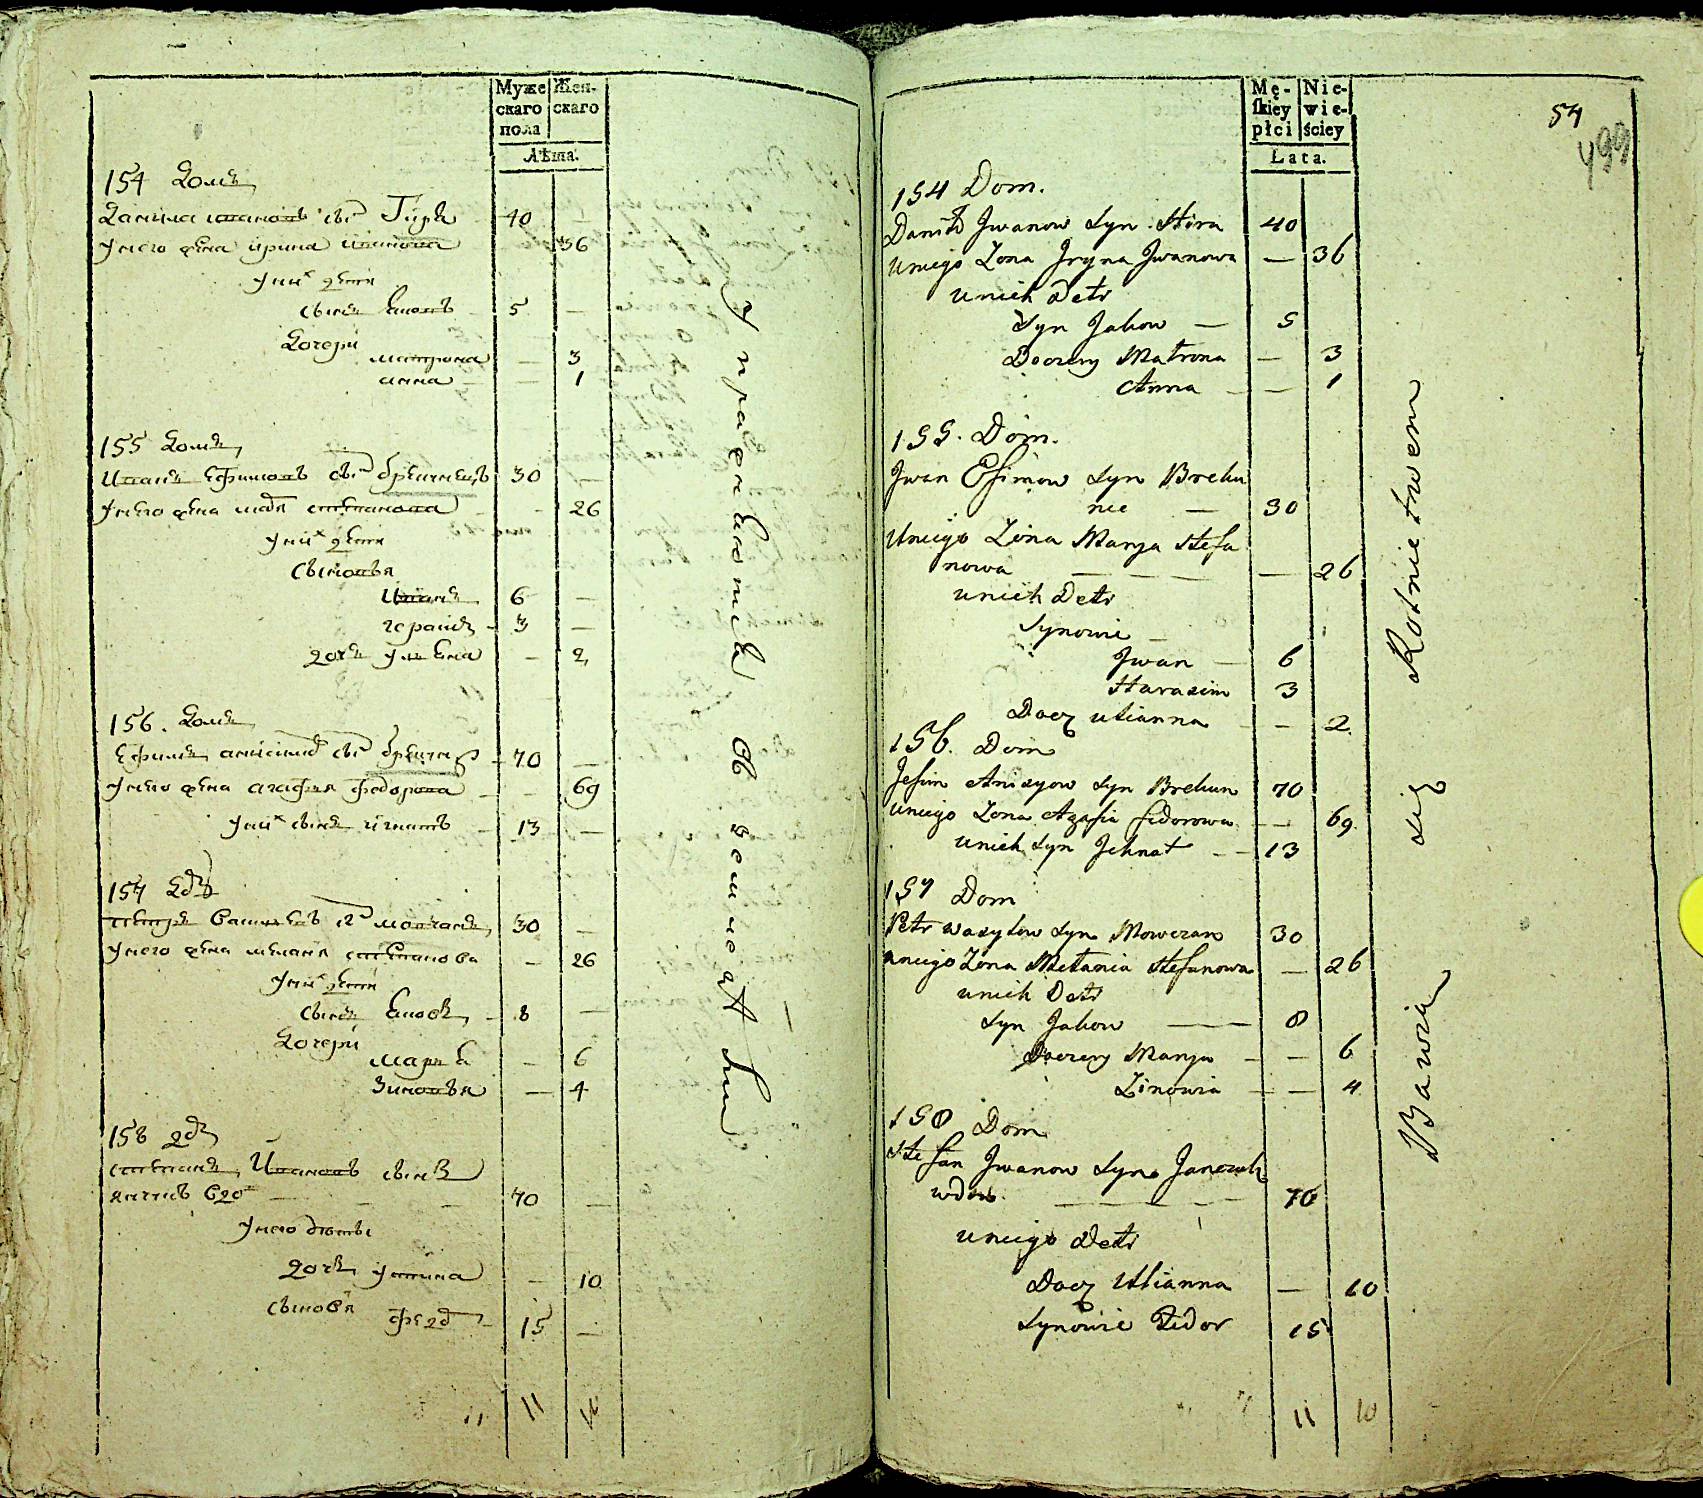 Муже
скаго
пола
Жен-
скаго
Лѣта.
154 Домъ
Данила Ивановъ снъ Гирк 40
У него жена Ирина Иванова — 36
У них дети
сынъ Яковъ 5 —
Дочери
Матрона — 3
Анна — 1
155 Домъ
Иванъ Ефимовъ снъ 30 —
У него жена Марья Степанова — 26
У них дети
Сыновья
Иванъ 6 —
Герасимъ 3 —
дочь Ульяна — 2
156. Домъ
Ефимъ Анисимов снъ 70 —
У него жена Агафия Федорова — 69
У них сынъ Игнатъ 13 —
157 Дом
Петръ Василевъ снъ Мовчанъ 30 —
У него жена Мелания Степанова — 26
У них дети
сынъ Яковъ 8 —
Дочери
Марья — 6
Зиновья — 4
158 дом
Степанъ Ивановъ сынъ
вдов 70 —
У него дети
дочь Устина — 10
сыновя Федор 15 —
11 11 10
Упражняютца В земледелии
Mę-
skiey
płci
Nie-
wie-
ściey
Lata.
54
499
154 Dom.
Daniło Jwanow Syn Hira 40
Uniego Zona Jryna Jwanowa — 36
Unich Deti
Syn Jakow — 5
Doczery Matrona — 3
Anna — 1
155. Dom.
Jwan Efimow Syn Brehu
nie — 30
Uniego Zona Marya Stefa
nowa — 26
Unich Deti
Synowie —
Jwan — 6
Harasim 3
Docz Ulianna — 2
156. Dom
Jefim Anisyow Syn Brehun 70
Uniego Zona Agafia Fedorowa — 69.
Unich Syn Jehnat — 13
157 Dom
Petr Wasylow Syn Mowczan 30
Uniego Zona Mełania Stefanowa — 26
Unich Deti
Syn Jakow — 8
Doczery Marya — 6
Zinowia — 4
158 Dom
Stefan Jwanow Syn
wdow. 70
Uniego Deti
Docz Ulianna — 10
Synowie Fedor 15
11 10
Bawią się Rolnictwem